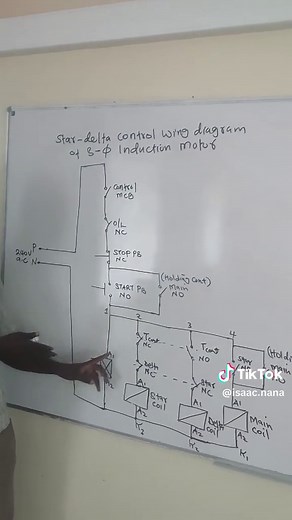 Star-delta control wing diagram
of 3-Φ Induction motor
control
MCB
O/L
NC
240V
A.C
P
N
STOP PB
NC
(Holding Cont)
Main
NO
START PB
NO
1
2
3
4
Tcont
NC
Tcont
NO
Star
(Holding
main
Delta
NC
Star
NC
A1
A2
Star
coil
A1
A2
Delta
coil
A1
A2
Main
coil
K3
K2
K1
TikTok
@isaac.nana